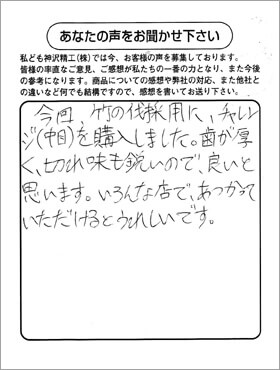 あなたの声をお聞かせ下さい
私ども神沢精工(株)では今、お客様の声を募集しております。
皆様の率直なご意見、ご感想が私たちの一番の力となり、また今後
の参考になります。商品についての感想や弊社の対応、また他社と
の違いなど何でも結構ですので、感想を書いてお送り下さい。
今回、竹の伐採用に、チャレン
ジ(中目)を購入しました。歯が厚
く、切れ味も鋭いので、良いと
思います。いろんな店で、あつかって
いただけるとうれしいです。